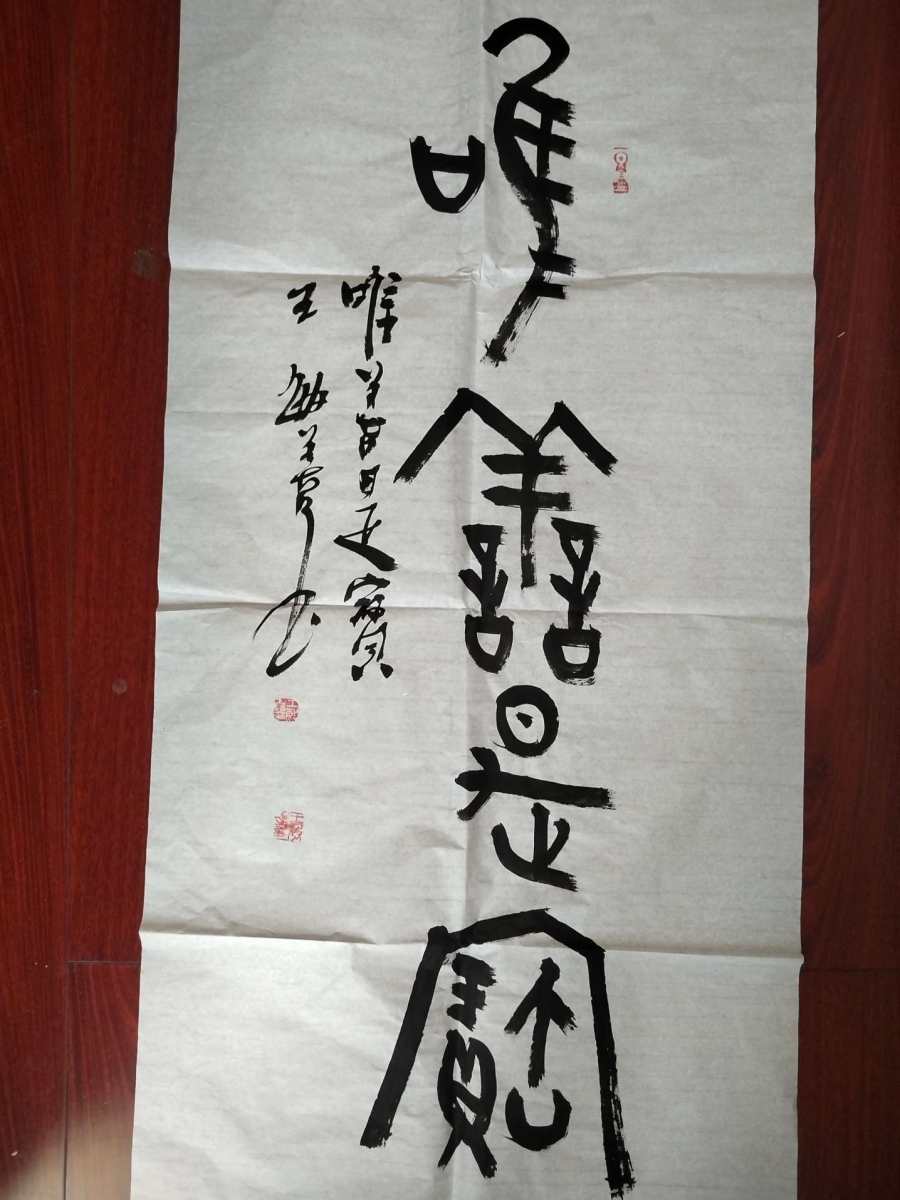 唯善是寶
唯善是寶
王
书